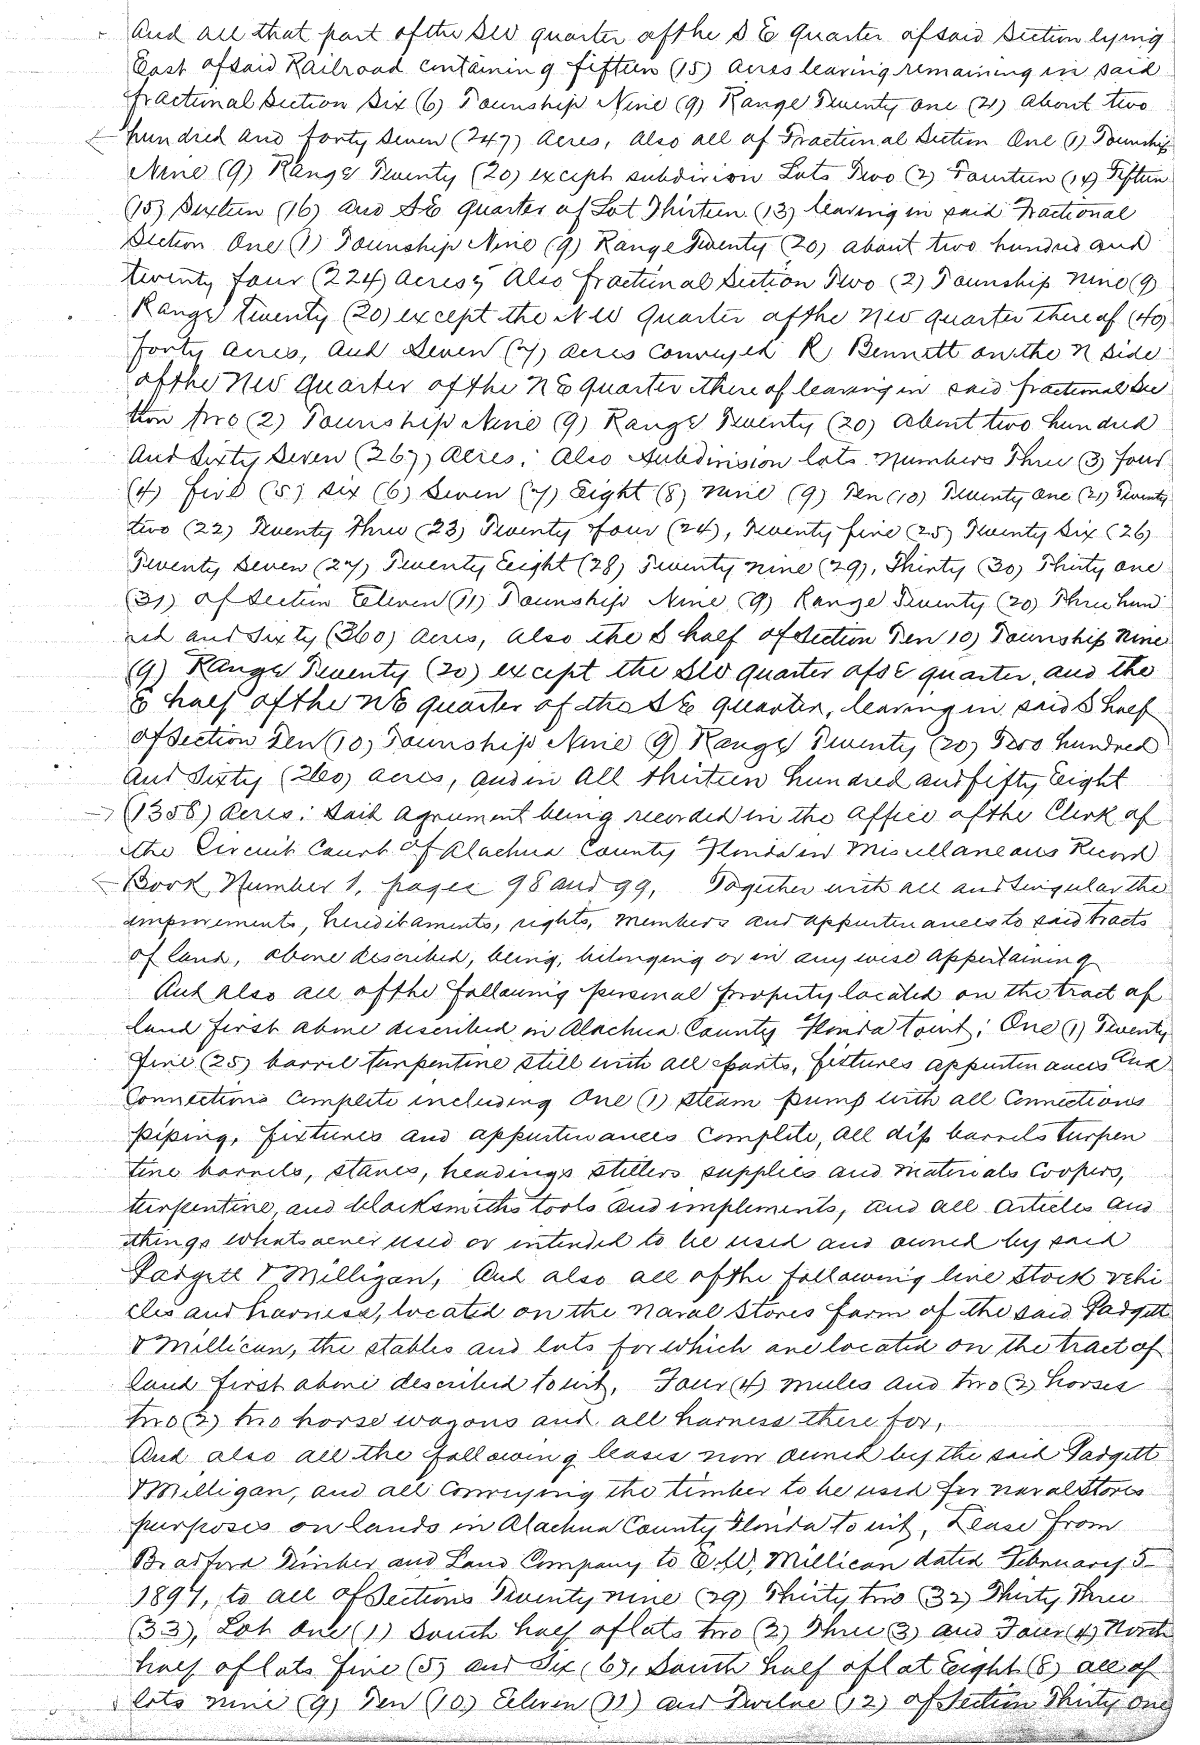 And all that part of the SW quarter of the S E Quarter of said Section lying
East of said Railroad containing fifteen (15) acres leaving remaining in said
fractional Section Six (6) Township Nine (9) Range Twenty one (21) About two
hundred and forty Seven (247) Acres, Also all of Fractional Section One (1) Township
Nine (9) Range Twenty (20) except subdivision Lots Two (2) Fourteen (14) Fifteen
(15) Sixteen (16) and SE quarter of Lot Thirteen (13) leaving in said Fractional
Section One (1) Township Nine (9) Range Twenty (20) about two hundred and
twenty four (224) acres; Also fractional Section Two (2) Township Nine (9)
Range twenty (20) except the NW Quarter of the NW quarter thereof (40)
forty acres, And Seven (7) acres conveyed R Bennett on the N side
of the NW Quarter of the N E quarter there of leaving in said fractional Sec
tion two (2) Township Nine (9) Range Twenty (20) About two hundred
And Sixty Seven (267) Acres; Also Subdivision lots Numbers Three (3) four
(4) five (5) six (6) Seven (7) Eight (8) Nine (9) Ten (10) Twenty one (21) Twenty
two (22) Twenty Three (23) Twenty four (24), Twenty five (25) Twenty Six (26)
Twenty Seven (27) Twenty Eeight (28) Twenty nine (29), Thirty (30) Thirty one
(31) of Section Eeleven (11) Township Nine (9) Range Twenty (20) Three hun
red and Sixty (360) Acres, Also the S half of Section Ten 10) Township Nine
(9) Range Twenty (20) except the SW quarter of SE quarter, and the
E half of the NE quarter of the S E Quarter, leaving in said S half
of Section Ten (10) Township Nine (9) Range Twenty (20) Two hundred
And Sixty (260) acres, and in All thirteen hundred and fifty Eight
(1358) Acres: Said Agreement being recorded in the Office of the Clerk of
the Circuit Court of Alachua County Florida in Miscellaneous Record
Book Number 1, pages 98 and 99, Together with all and Singular the
improvements, hereditaments, rights, members and appurtenances to said tracts
of land, above described, being, belonging or in any wise Appertaining
And also all of the following personal property located on the tract of
land first above described in Alachua County Florida towit; One (1) Twenty
five (25) barrel turpentine still with all parts, fixtures appurtenances And
Connections Complete including One (1) steam pump with all Connections
piping, fixtures and appurtenances Complete, All dip barrels turpen
tine barrels, staves, headings stillers supplies and Materials Coopers,
turpentine, and blacksmiths tools and implements, and all articles and
things whatsoever used or intended to be used and owned by said
Padgett & Milligan, And also all of the following live stock vehi
cles and harness, located on the Naval Stores farm of the said Padgett
& Millican, the stables and lots for which are located on the tract of
land first above described towit, Four (4) mules and two (2) horses
two (2) two horse wagons and all harness there for,
And also all the following leases now owned by the said Padgett
& Milligan, and all Conveying the timber to be used for naval stores
purposes on lands in Alachua County Florida to wit, Lease from
Bradford Timber and Land Company to E.W. Millican dated February 5
1897, to all of Sections Twenty nine (29) Thirty two (32) Thirty Three
(33), Lot One (1) South half of lots two (2) Three (3) and Four (4) North
half of lots five (5) and Six (6), South half of lot Eight (8) all of
lots nine (9) Ten (10) Eeleven (11) and Twelve (12) of Section Thirty one